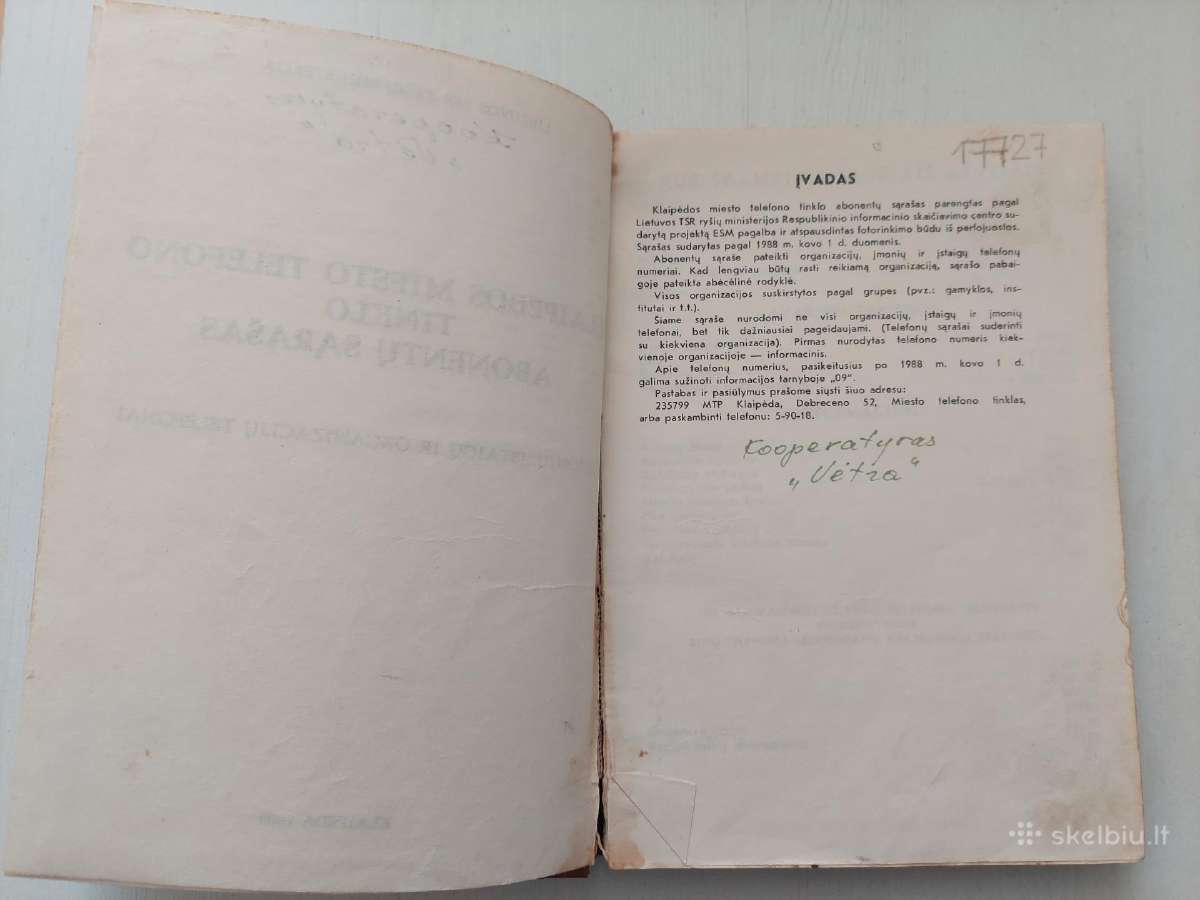 KLAIPĖDOS MIESTO TELEFONO
TINKLO
ABONENTŲ SĄRAŠAS
ĮSTAIGŲ IR ORGANIZACIJŲ TELEFONAI
17727
ĮVADAS
Klaipėdos miesto telefono tinklo abonentų sąrašas parengtas pagal
Lietuvos TSR ryšių ministerijos Respublikinio informacinio skaičiavimo centro su-
darytą projektą ESM pagalba ir atspausdintas fotorinkimo būdu iš perfojuostos.
Sąrašas sudarytas pagal 1988 m. kovo 1 d. duomenis.
Abonentų sąraše pateikti organizacijų, įmonių ir įstaigų telefonų
numeriai. Kad lengviau būtų rasti reikiamą organizaciją, sąrašo pabai-
goje pateikta abėcėlinė rodyklė.
Visos organizacijos suskirstytos pagal grupes (pvz.: gamyklos, ins-
titutai ir t.t.).
Šiame sąraše nurodomi ne visi organizacijų, įstaigų ir įmonių
telefonai, bet tik dažniausiai pageidaujami. (Telefonų sąrašai suderinti
su kiekviena organizacija). Pirmas nurodytas telefono numeris kiek-
vienoje organizacijoje — informacinis.
Apie telefonų numerius, pasikeitusius po 1988 m. kovo 1 d.
galima sužinoti informacijos tarnyboje „09".
Pastabas ir pasiūlymus prašome siųsti šiuo adresu:
235799 MTP Klaipėda, Debreceno 52, Miesto telefono tinklas,
arba paskambinti telefonu: 5-90-18.
Kooperatyvas
„Vėtra"
skelbiu.lt